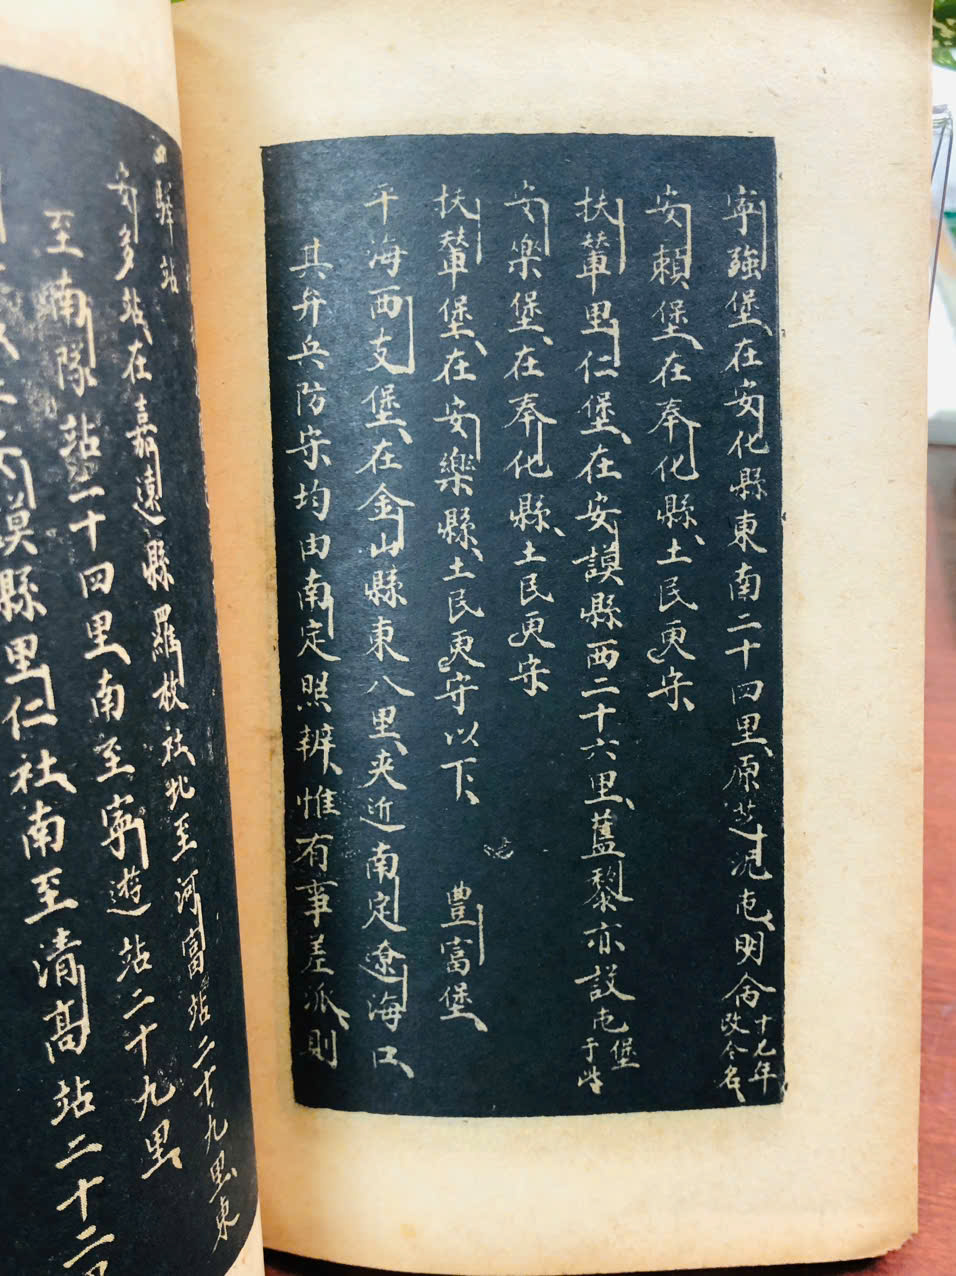 寧強堡在安化縣東南二十四里原芝況屯明命十九年改今名
安賴堡在奉化縣土民更守
扶輦里仁堡在安謨縣西二十六里藍黎亦設屯堡于此
安樂堡在奉化縣土民更守
扶輦堡在安樂縣土民更守以下 豊富堡
平海西支堡在金山縣東八里夾近南定遼海口
其弁兵防守均由南定照辨惟有事差派則
四驛站
安多站在嘉遠縣羅枚社北至河富站二十九里東
至南隊站二十四里南至寧遊站二十九里
謨縣里仁社南至清高站二十二里